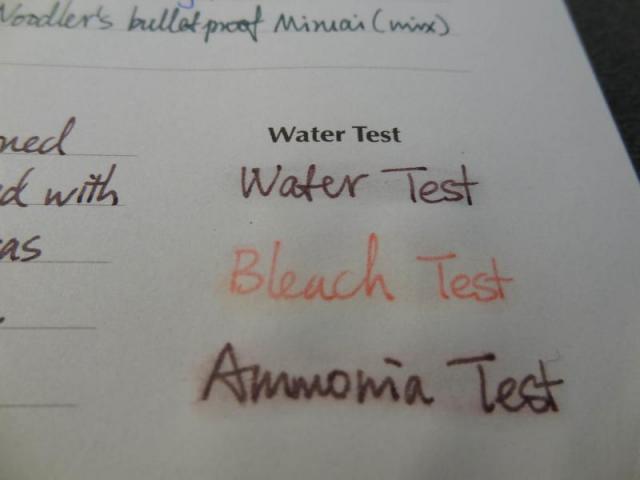 Noodler's bulletproof Mirua: (mix)
ned
d with
as
Water Test
Water Test
Bleach Test
Ammonia Test